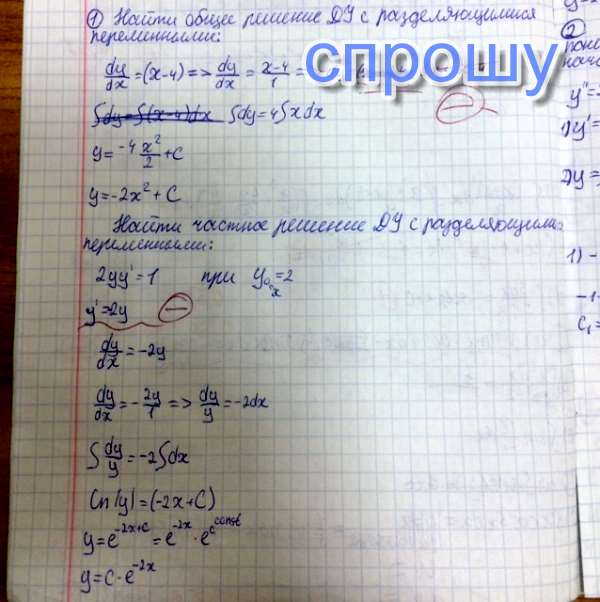 ① Найти общее решение ДУ с разделяющимися
переменными:
dy/dx = (x-4) => dy/dx = x-4/1 =
спрошу
∫dy = ∫(x-4)dx ∫dy = 4∫xdx
y = -4 x²/2 + C
y = -2x² + C
Найти частное решение ДУ с разделяющими
переменными:
2yy' = 1 при y = 2
y' = 2y
dy/dx = -2y
dy/dx = - 2y/1 => dy/y = -2dx
∫ dy/y = -2∫dx
Ln|y| = (-2x+C)
y = e^(-2x+C) = e^(-2x) · e^C const
y = C · e^(-2x)
②
y''
1) y' =
2) y =
1) -
-1
C₁ =